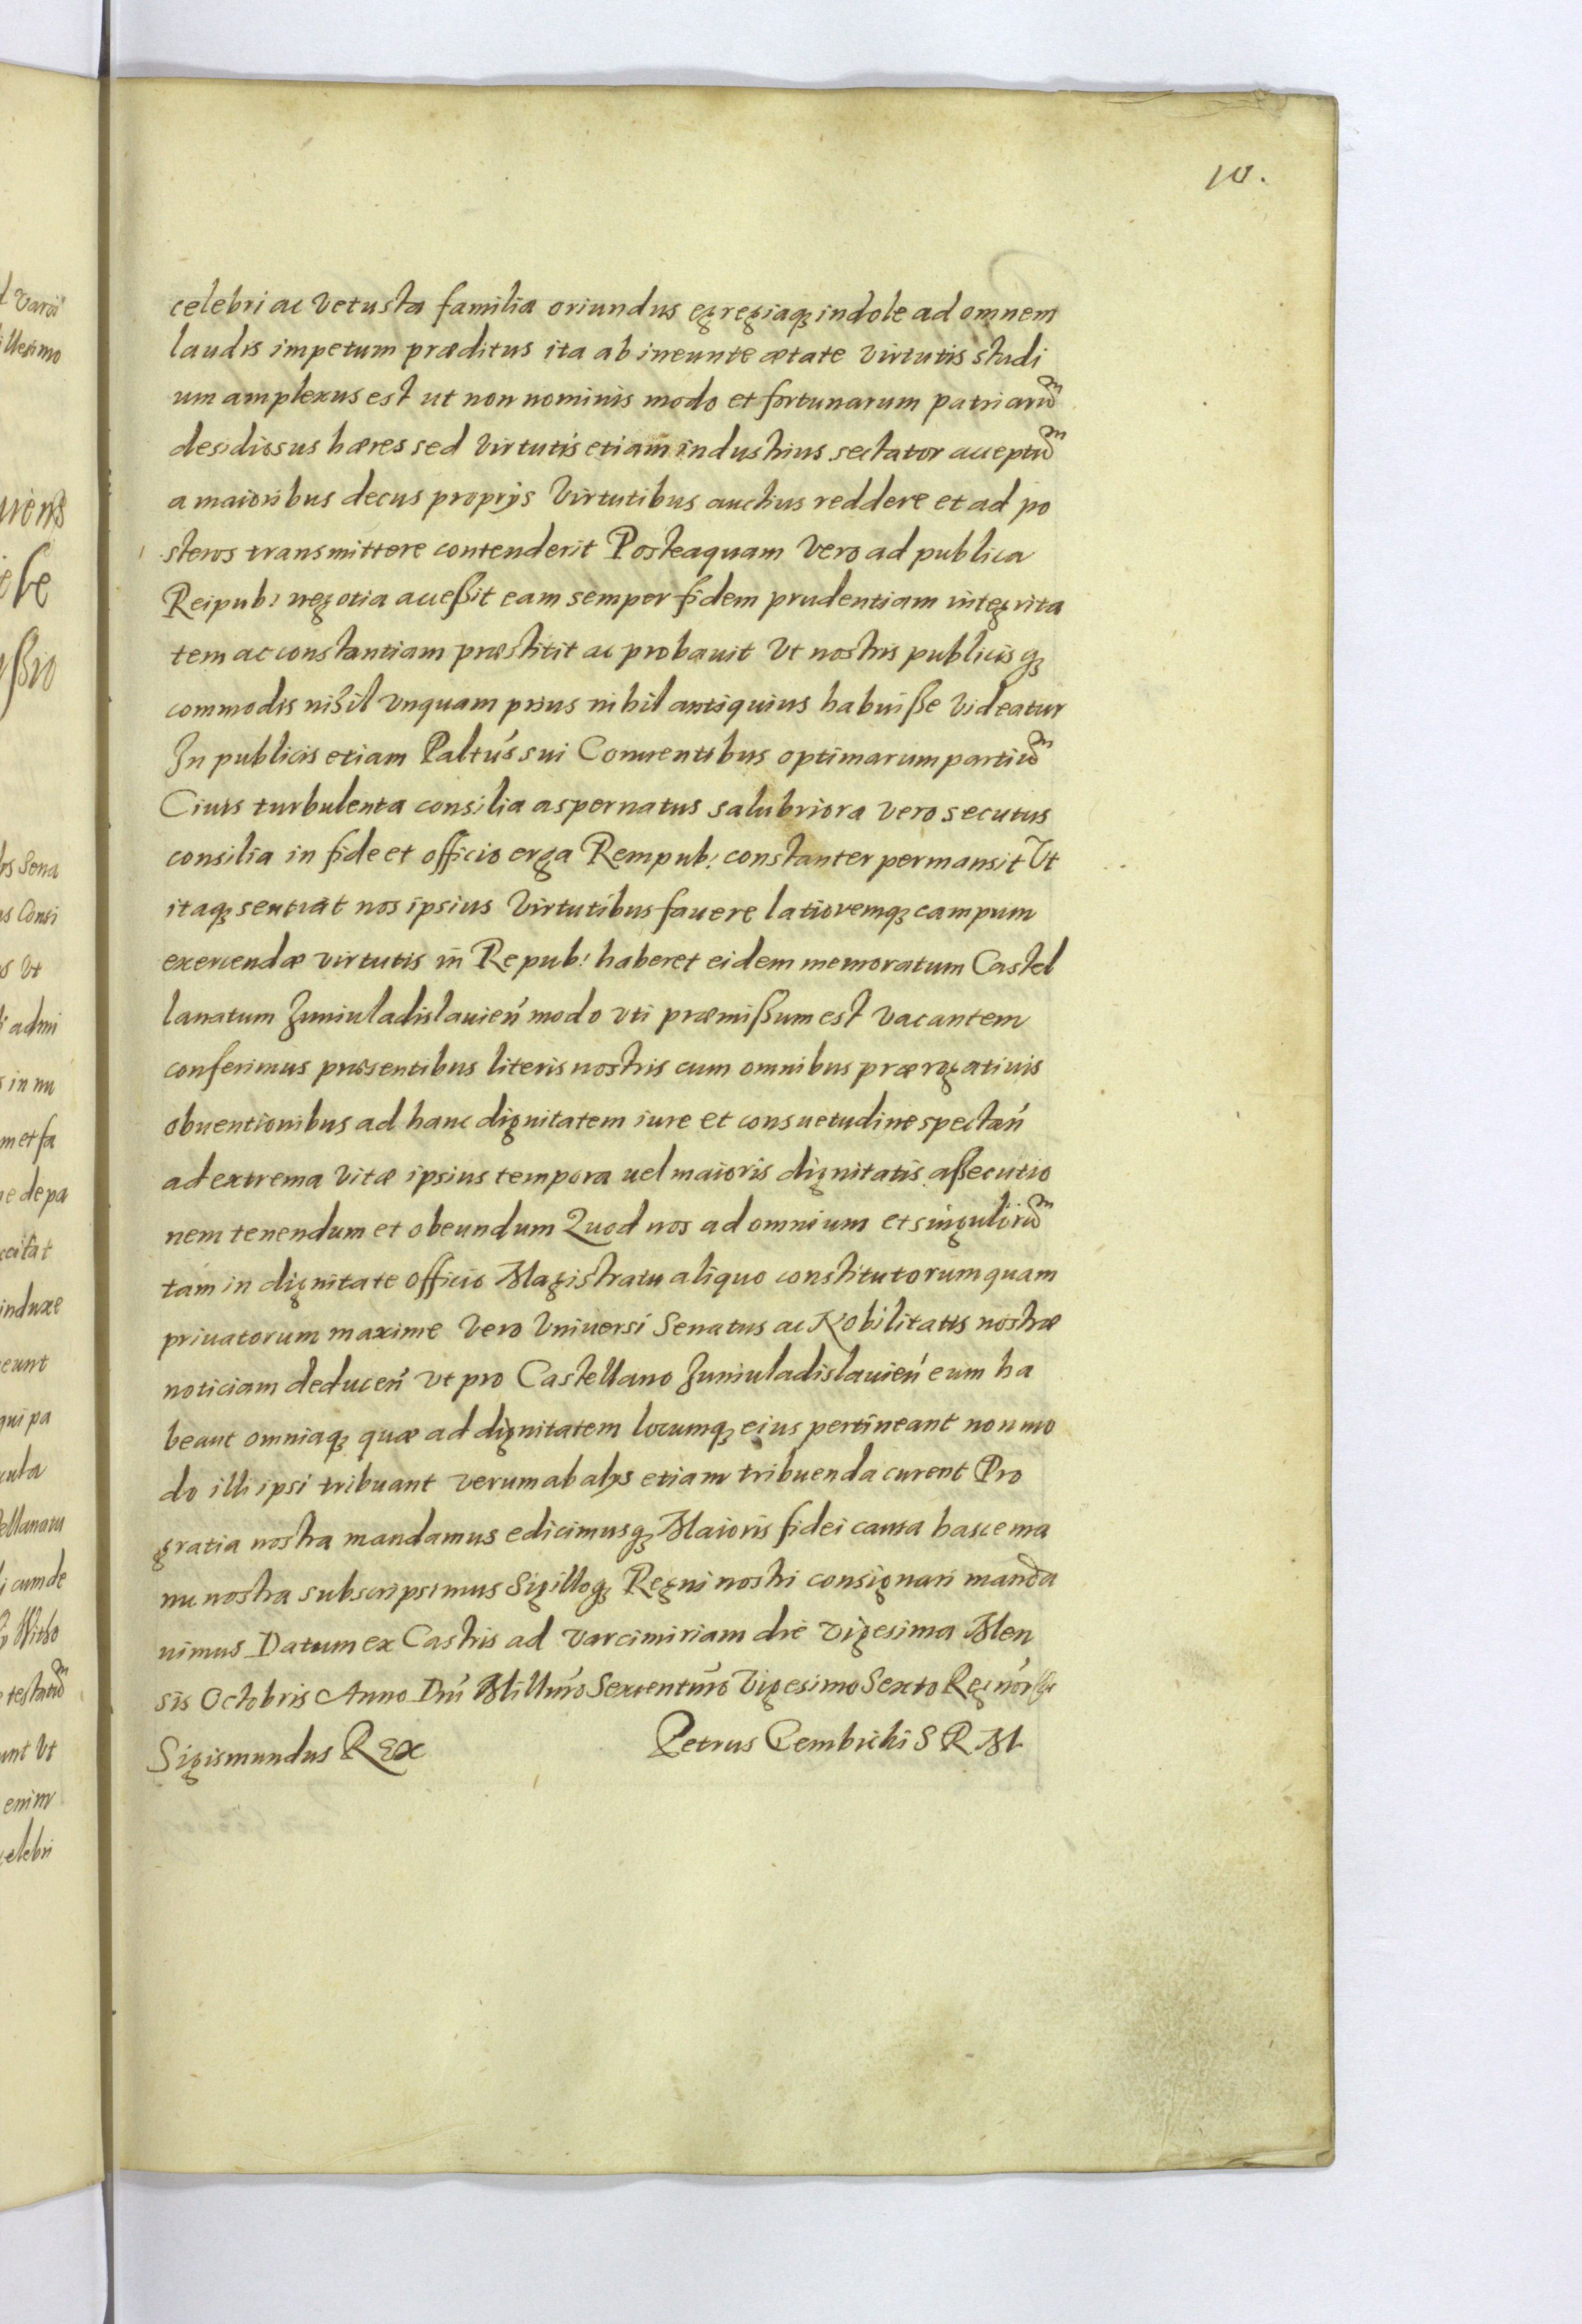 10.
celebri ac vetusta familia oriundus egregiaq; indole ad omnem
laudis impetum præditus ita ab ineunte ætate virtutis studi
um amplexus est ut non nominis modo et fortunarum patriarũ
desidiosus hæres sed virtutis etiam industrius sectator acceptũ
a maioribus decus proprijs virtutibus auctius reddere et ad po
steros transmittere contenderit Posteaquam vero ad publica
Reipub: negotia accessit eam semper fidem prudentiam integrita
tem ac constantiam præstitit ac probauit vt nostris publicis q;
commodis nihil vnquam prius nihil antiquius habuisse videatur
In publicis etiam Paltus sui Conuentibus optimarum partiũ
Ciuis turbulenta consilia aspernatus salubriora vero secutus
consilia in fide et officio erga Rempub: constanter permansit Vt
itaq; sentiat nos ipsius virtutibus fauere latioremq; campum
exercendæ virtutis in Repub: haberet eidem memoratum Castel
lanatum Juniuladislauien̄ modo vti præmissum est vacantem
conferimus præsentibus literis nostris cum omnibus prærogatiuis
obuentionibus ad hanc dignitatem iure et consuetudine spectan̄
ad extrema vitæ ipsius tempora uel maioris dignitatis assecutio
nem tenendum et obeundum Quod nos ad omnium et singulorũ
tam in dignitate officio Magistratu aliquo constitutorum quam
priuatorum maxime vero vniuersi Senatus ac Nobilitatis nostræ
noticiam deducen̄ vt pro Castellano Juniuladislauien̄ eum ha
beant omniaq; quæ ad dignitatem locumq; eius pertineant non mo
do illi ipsi tribuant verum ab alijs etiam tribuenda curent Pro
gratia nostra mandamus edicimusq; Maioris fidei causa hasce ma
nu nostra subscripsimus Sigilloq; Regni nostri consignari manda
uimus Datum ex Castris ad Varcimiriam die vigesima Men
sis Octobris Anno Dn̄i Millmo Sexcentmo Vigesimo Sexto Regnor
Sigismundus Rex Petrus Gembichi S R M